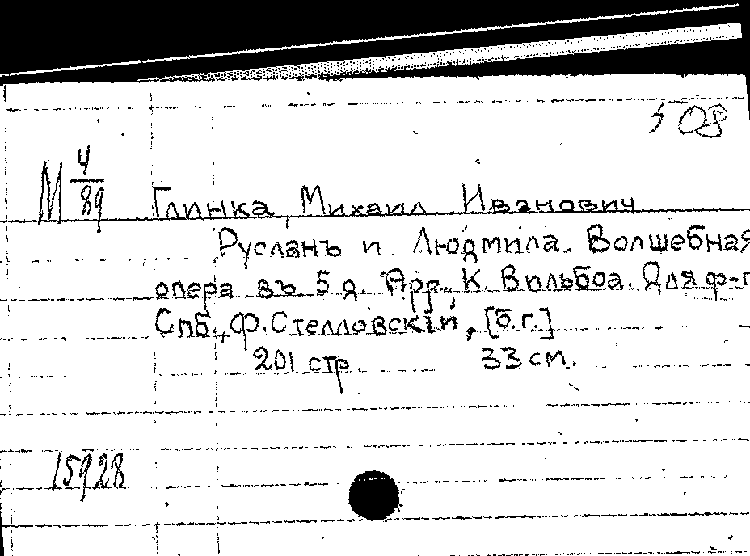 08
М 4/89
Глинка, Михаил Иванович
Русланъ и Людмила. Волшебная
опера въ 5 д. Арр. К. Вильбоа. Для ф-п
Спб., Ф. Стелловскій, [б.г.]
201 стр. 33 см.
15928